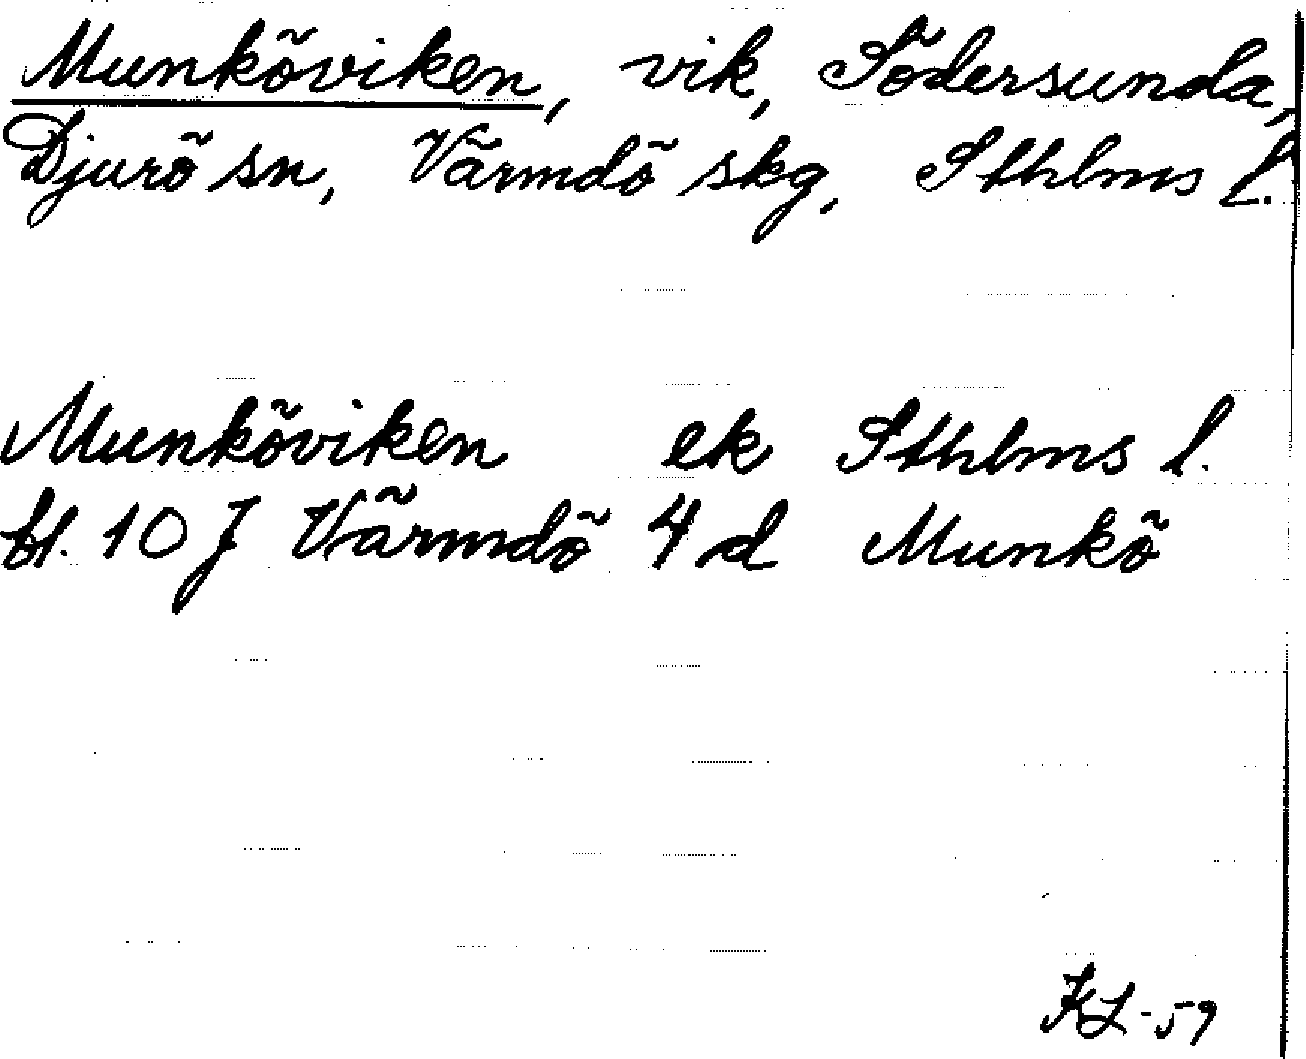 Munköviken, vik, Södersunda,
Djurö sn, Värmdö skg, Sthlms l.
Munköviken ek Sthlms l.
bl. 10 J Värmdö 4 d Munkö
KL-59